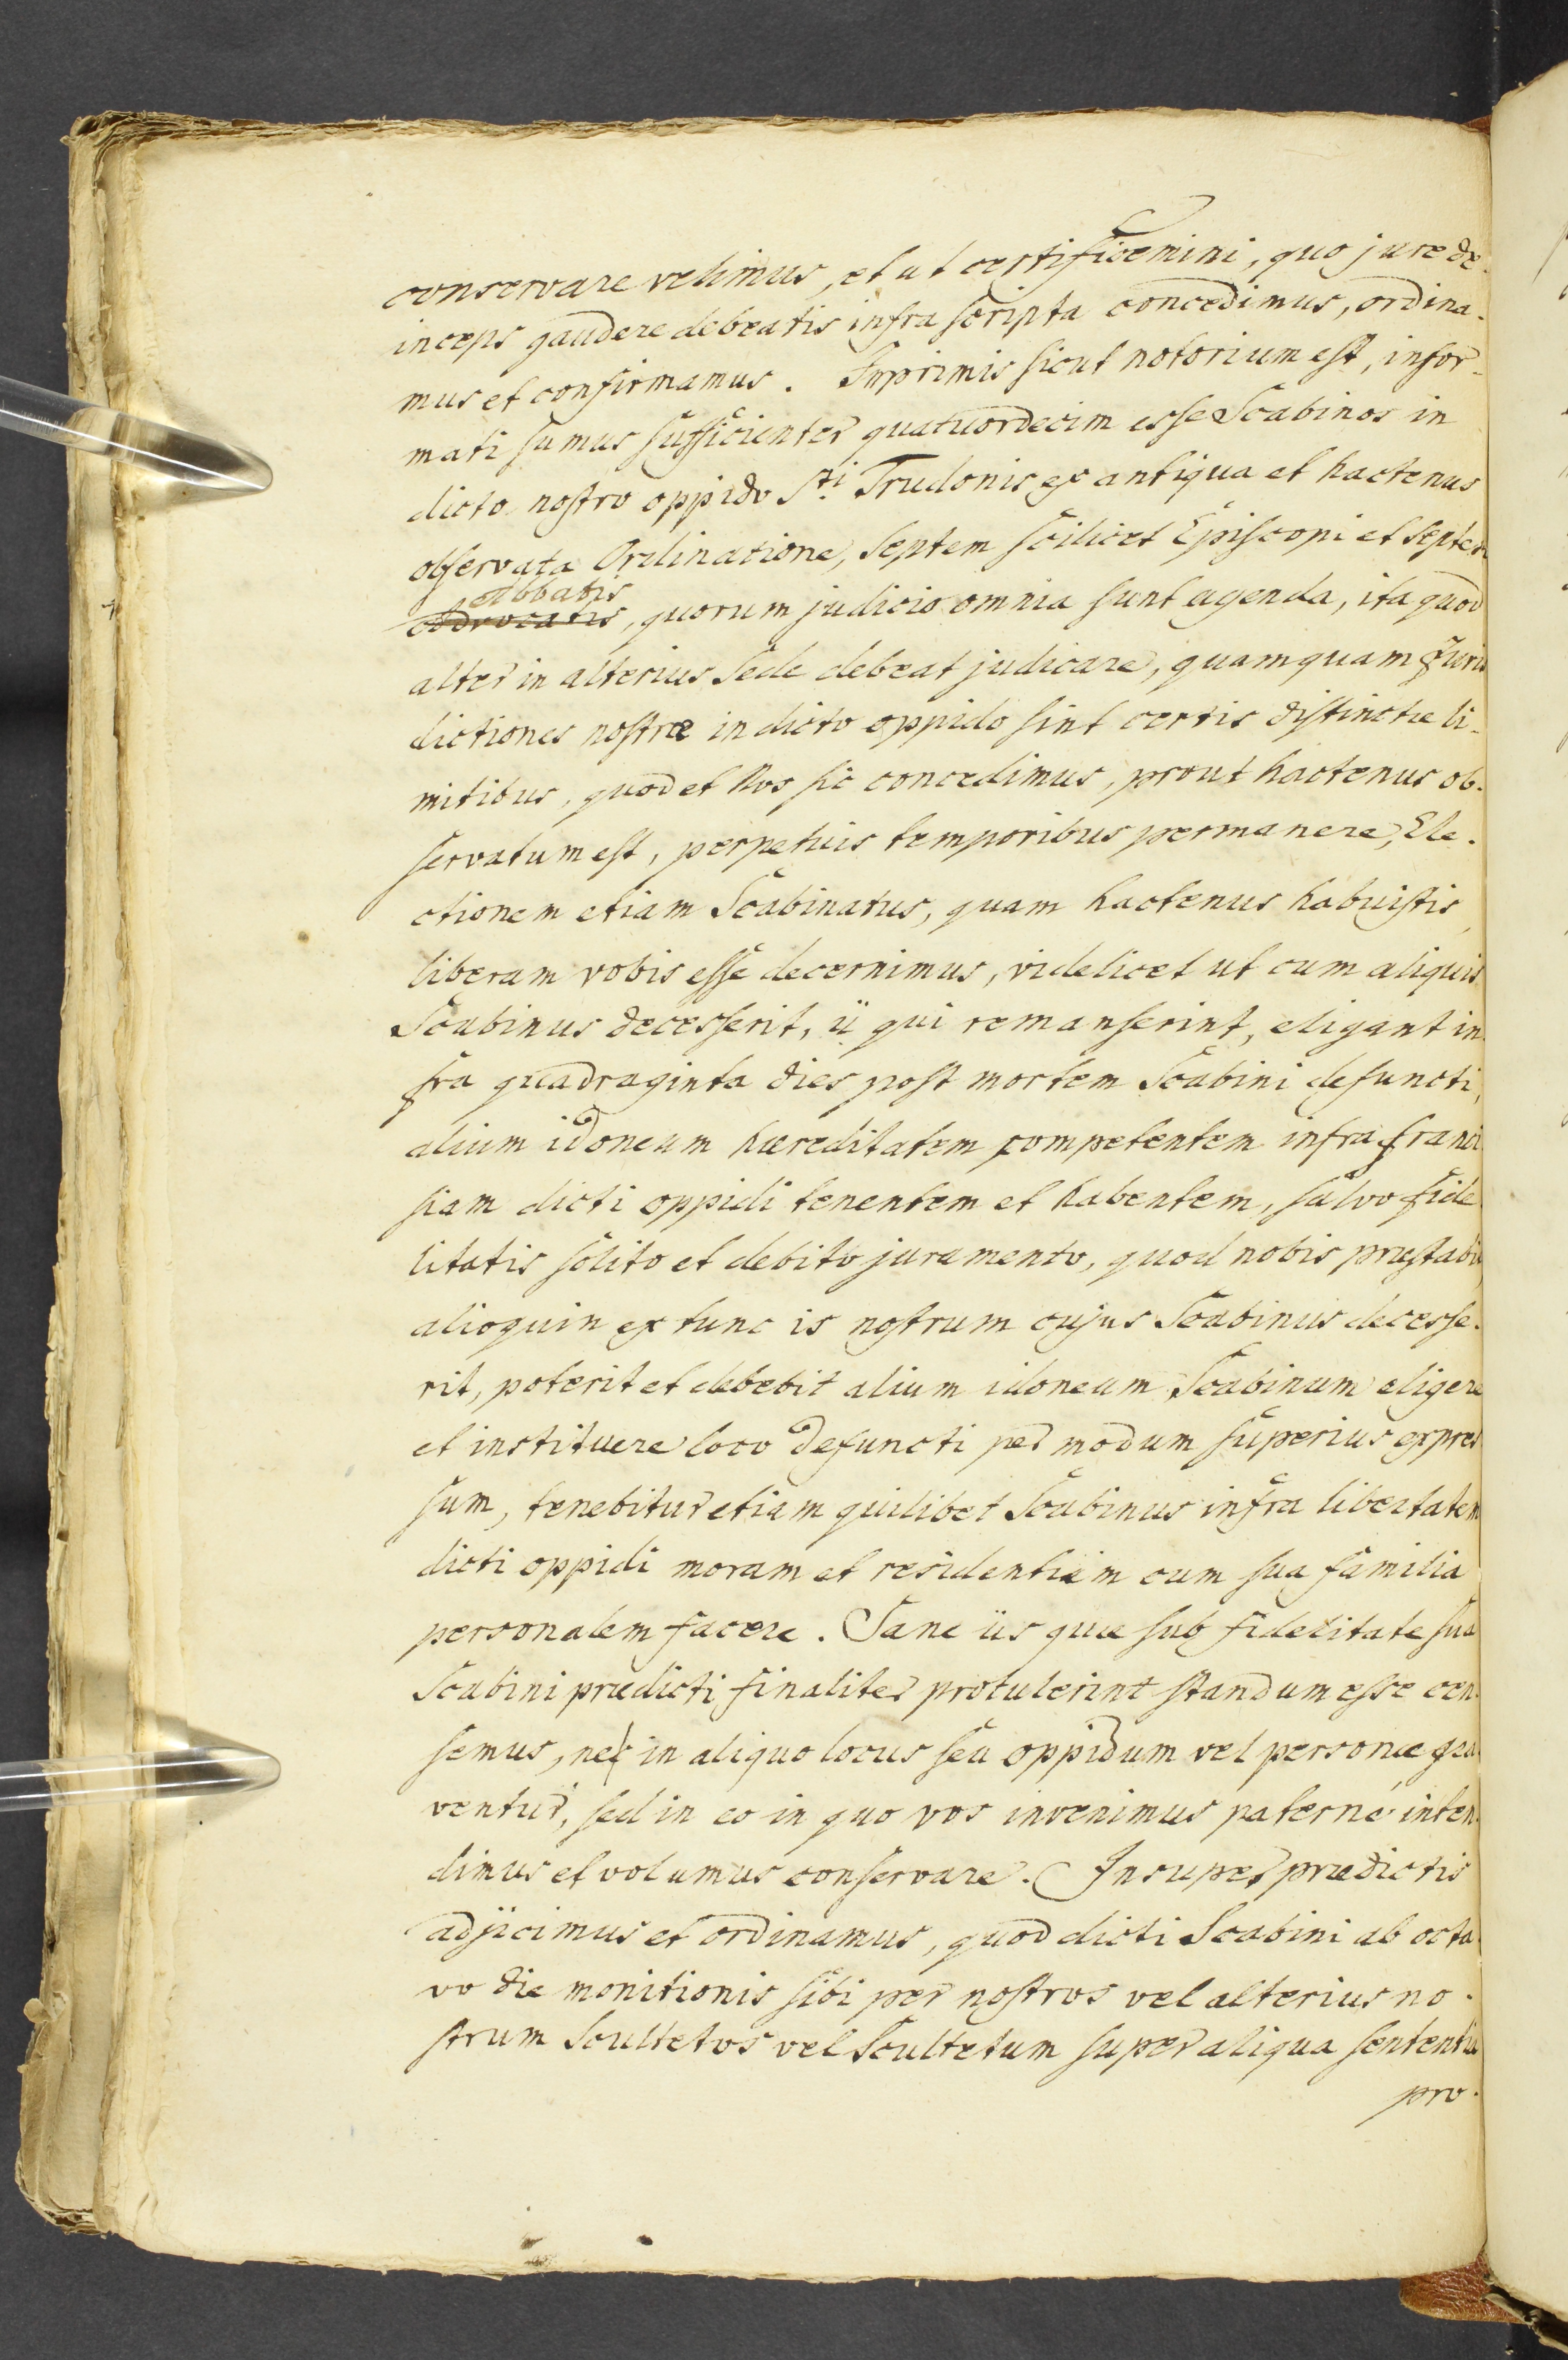 conservare velimus, et ut certificemini, quo jure de-
inceps gaudere debeatis infra scripta concedimus, ordina-
mus et confirmamus. Imprimis sicut notorium est, infor-
mati sumus sufficienter quatuordecim esse Scabinos in
dicto nostro oppido Sti. Trudonis ex antiqua et hactenus
observata Ordinatione, septem scilicet Episcopi et septem
abbatis
advocatis, quorum judicio omnia sunt agenda, ita quod
alter in alterius sede debeat judicare, quamquam Juris
dictiones nostræ in dicto oppido sint certis distinctæ li-
mitibus, quod et Nos sic concedimus, prout hactenus ob-
servatum est, perpetuis temporibus permanere, Ele-
ctionem etiam Scabinatus, quam hactenus habuistis,
liberam vobis esse decernimus, videlicet ut cum aliquis
Scabinus decesserit, ii qui remanserint, eligant in-
fra quadraginta dies post mortem Scabini defuncti,
alium idoneum hæreditatem competentem infra franci
siam dicti oppidi tenentem et habentem, salvo fide
litatis solito et debito juramento, quod nobis præstabit,
alioquin ex tunc is nostrum cujus Scabinus decesse-
rit, poterit et debebit alium idoneum Scabinum eligere
et instituere loco defuncti per modum superius expres
sum, tenebitur etiam quilibet Scabinus infra libertatem
dicti oppidi moram et residentiam cum sua familia
personalem facere. Sane iis quæ sub fidelitate sua
Scabini prædicti finaliter protulerint standum esse cen-
semus, ne in aliquo locus seu oppidum vel personæ gra
ventur, sed in eo in quo vos invenimus paterné inten-
dimus et volumus conservare. Insuper prædictis
adjicimus et ordinamus, quod dicti Scabini ab octa
vo die monitionis sibi per nostros vel alterius no-
strum Scultetos vel Scultetum super aliqua sententia
pro-